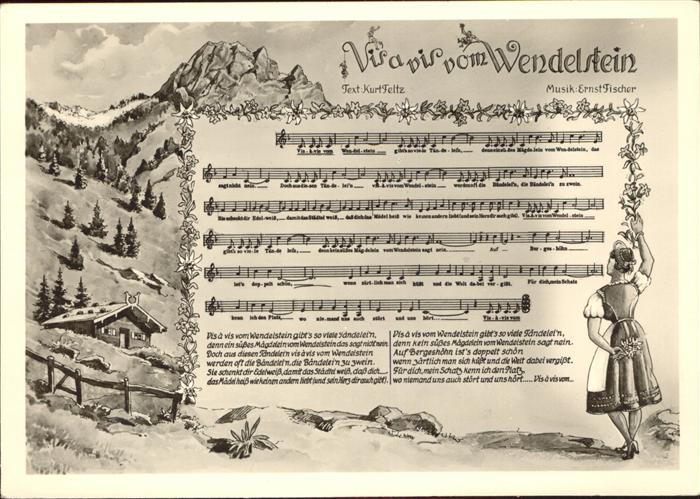 Vis a vis vom Wendelstein
Text: Kurt Feltz
Musik: Ernst Fischer
Vis-à-vis vom Wen-del-stein gibt's so vie-le Tän-de-lei'n, denn ein süß-es Mägdelein vom Wen-delstein, das
sagt nicht nein. Doch aus die-sen Tän-de-lei'n vis-à-vis vom Wendel-stein werden oft die Bändelei'n, die Bändelei'n zu zwein.
Sie schenkt dir Edel-weiß, damit das Städtel weiß, daß dich das Mädel heiß wie keinen andern liebt und sein Herz dir auch gibt. Vis-à-vis vom Wendel-stein
gibt's so vie-le Tän-de lei'n, denn kein süßes Mäg-delein vom Wendelstein sagt nein. Auf Ber-ges-höhn
ist's dop-pelt schön, wenn zärt-lich man sich küßt und die Welt da-bei ver-gißt. Für dich, mein Schatz
kenn ich den Platz, wo nie-mand uns auch stört und uns hört. Vis-à-vis vom
Vis à vis vom Wendelstein gibt's so viele Tändelei'n,
denn ein süßes Mägdelein vom Wendelstein das sagt nicht nein.
Doch aus diesen Tändelei'n vis à vis vom Wendelstein
werden oft die Bändelei'n, die Bändelei'n zu zwein.
Sie schenkt dir Edelweiß, damit das Städtel weiß, daß dich....
das Mädel heiß wie keinen andern liebt (und sein Herz dir auch gibt).
Vis à vis vom Wendelstein gibt's so viele Tändelei'n,
denn kein süßes Mägdelein vom Wendelstein sagt nein.
Auf Bergeshöhn ist's doppelt schön
wenn zärtlich man sich küßt und die Welt dabei vergißt.
Für dich, mein Schatz kenn ich den Platz,
wo niemand uns auch stört und uns hört..... Vis à vis vom...